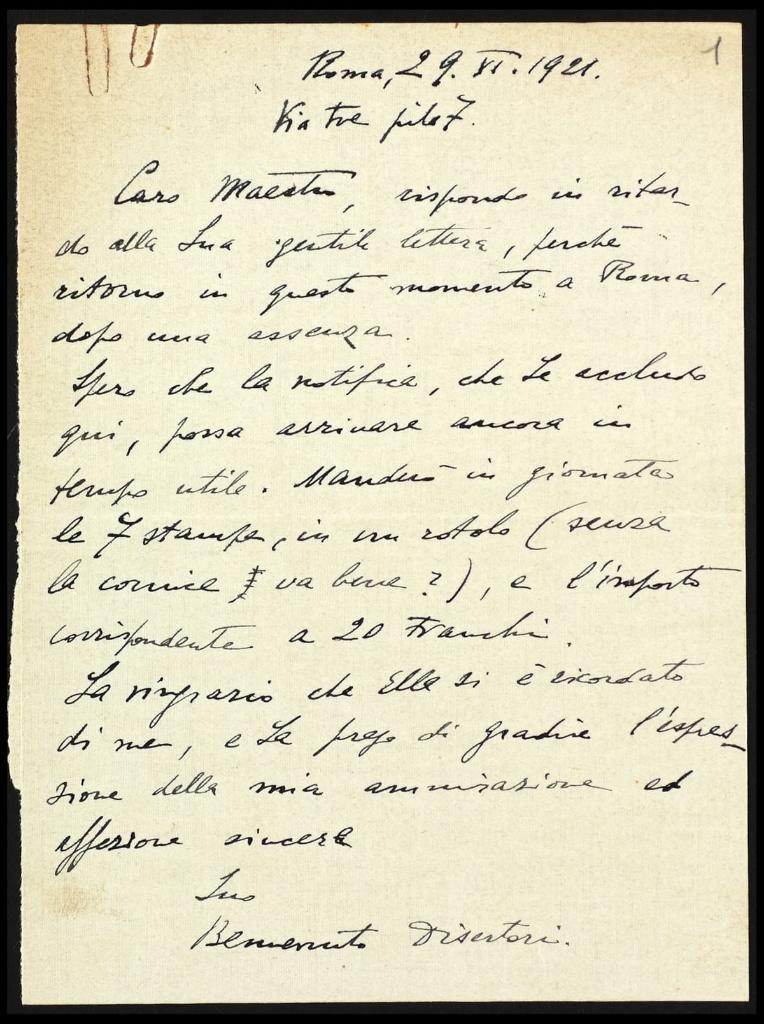 1
Roma, 29. XI. 1921.
Via tre pile 7.
Caro Maestro, rispondo in ritar-
do alla Sua gentile lettera, perchè
ritorno in questo momento a Roma,
dopo una assenza.
Spero che la notifica, che Le accludo
qui, possa arrivare ancora in
tempo utile. Manderò in giornata
le 7 stampe, in un rotolo (senza
la cornice va bene?), e l'importo
corrispondente a 20 Franchi.
La ringrazio che Ella si è ricordato
di me, e La prego di gradire l'espres-
sione della mia ammirazione ed
affezione sincere
Suo
Benvenuto Disertori.